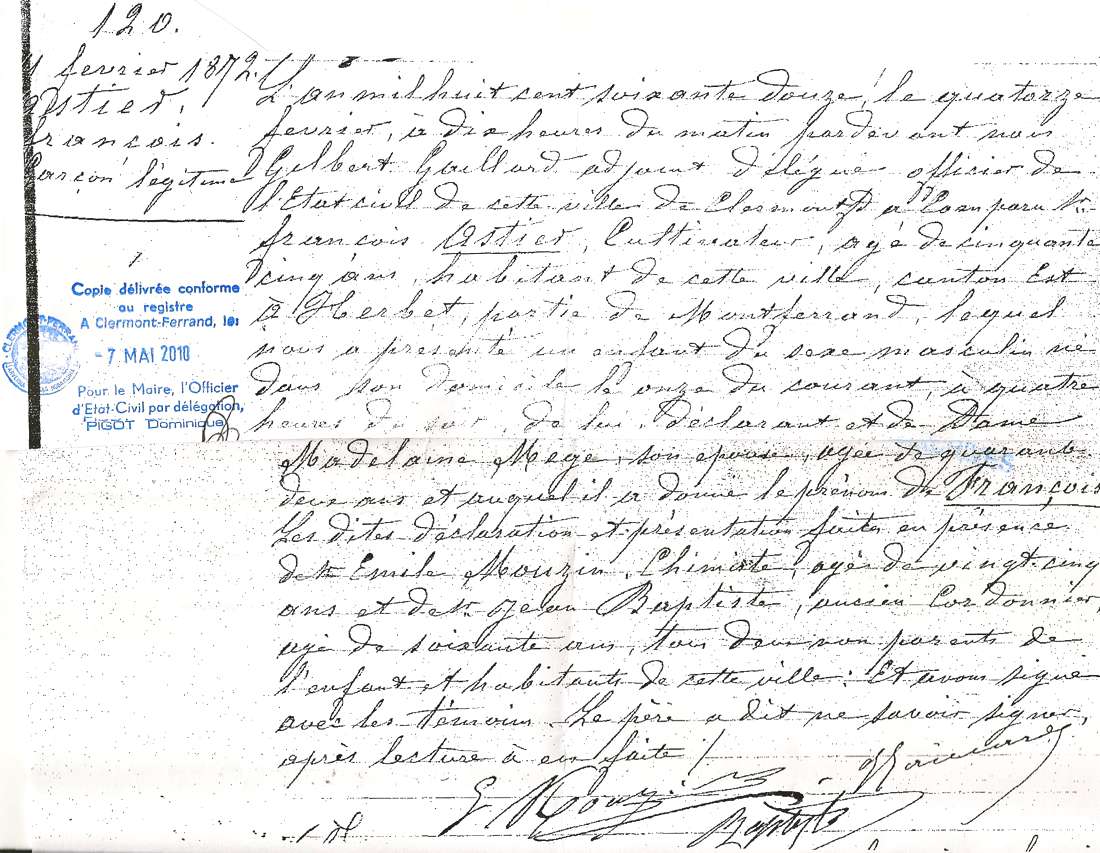 120.
fevrier 1872.
Astier,
françois.
Garçon légitime
Copie délivrée conforme
au registre
A Clermont-Ferrand, le:
-7 MAI 2010
Pour le Maire, l'Officier
d'Etat-Civil par délégation,
PIGOT Dominique
CLERMONT-FERRAND
L'an mil huit cent soixante douze, le quatorze
fevrier, à dix heures du matin pardevant nous
Gilbert Gaillard adjoint délégué officier de
l'Etat civil de cette ville de Clermont fd a Comparu Sr.
françois Astier, Cultivateur, agé de cinquante
cinq ans, habitant de cette ville, canton Est
à Herbet, partie de Montferrand, lequel
nous a presenté un enfant du sexe masculin né
dans son domicile le onze du courant, à quatre
heures du soir, de lui déclarant et de Dame
Madelaine Mege, son epouse, agée de quarante
deux ans et auquel il a donné le prénom de François
Les dites déclaration et présentation faites en présence
de Sr. Emile Mouzin, Chimiste, agé de vingt-cinq
ans et de Sr. Jean Baptiste, ancien Cordonnier,
agé de soixante ans, tous deux non parents de
l'enfant et habitants de cette ville. Et avons signé
avec les témoins. Le père a dit ne savoir signer,
après lecture à eux faite /
E Mouzin
Baptiste